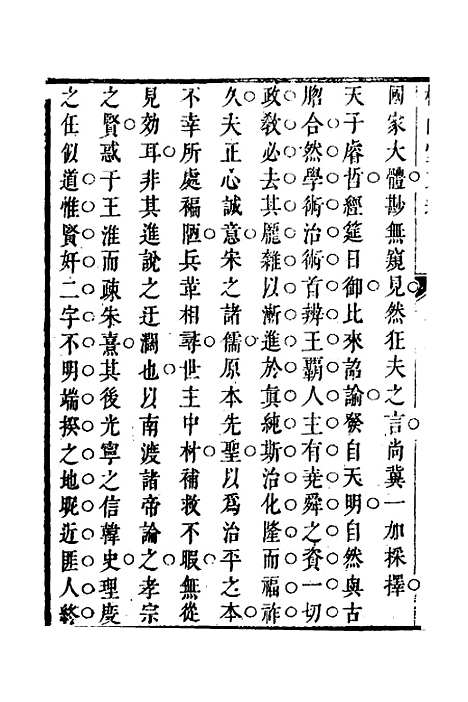 國家大體尠無窺見然狂夫之言尚冀一加採擇
天子睿哲經筵日御比來詔諭發自天明自然與古
脗合然學術治術首辨王霸人主有堯舜之資一切
政敎必去其龐雜以漸進於眞純斯治化隆而福祚
久夫正心誠意朱之諸儒原本先聖以爲治平之本
不幸所處褊陋兵革相尋世主中材補救不暇無從
見効耳非其進說之迂濶也以南渡諸帝論之孝宗
之賢惑于王淮而疎朱熹其後光寧之信韓史理度
之任似道惟賢奸二字不明端揆之地暱近匪人終